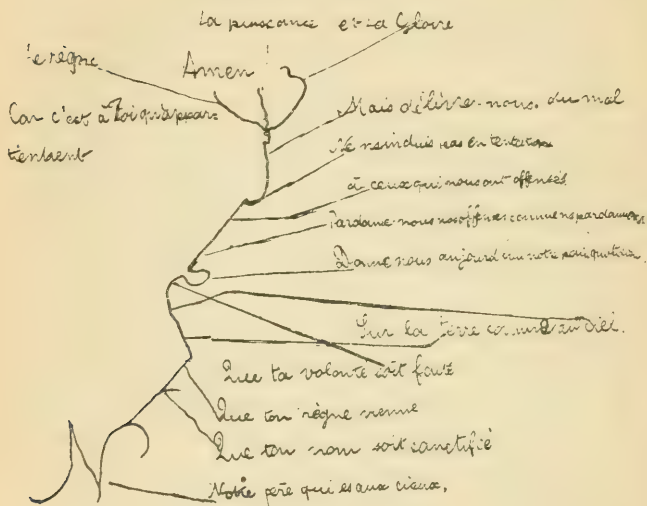 La puissance et la Gloire
le règne
Amen!
Car c'est à Toi qu'appar-
tiennent
Mais délivre-nous du mal
Ne nous induis pas en tentation
à ceux qui nous ont offensés
Pardonne-nous nos offenses comme nous pardonnons
Donne nous aujourd'hui notre pain quotidien
Sur la terre comme au Ciel.
Que ta volonté soit faite
Que ton règne vienne
Que ton nom soit sanctifié
Notre père qui es aux cieux,